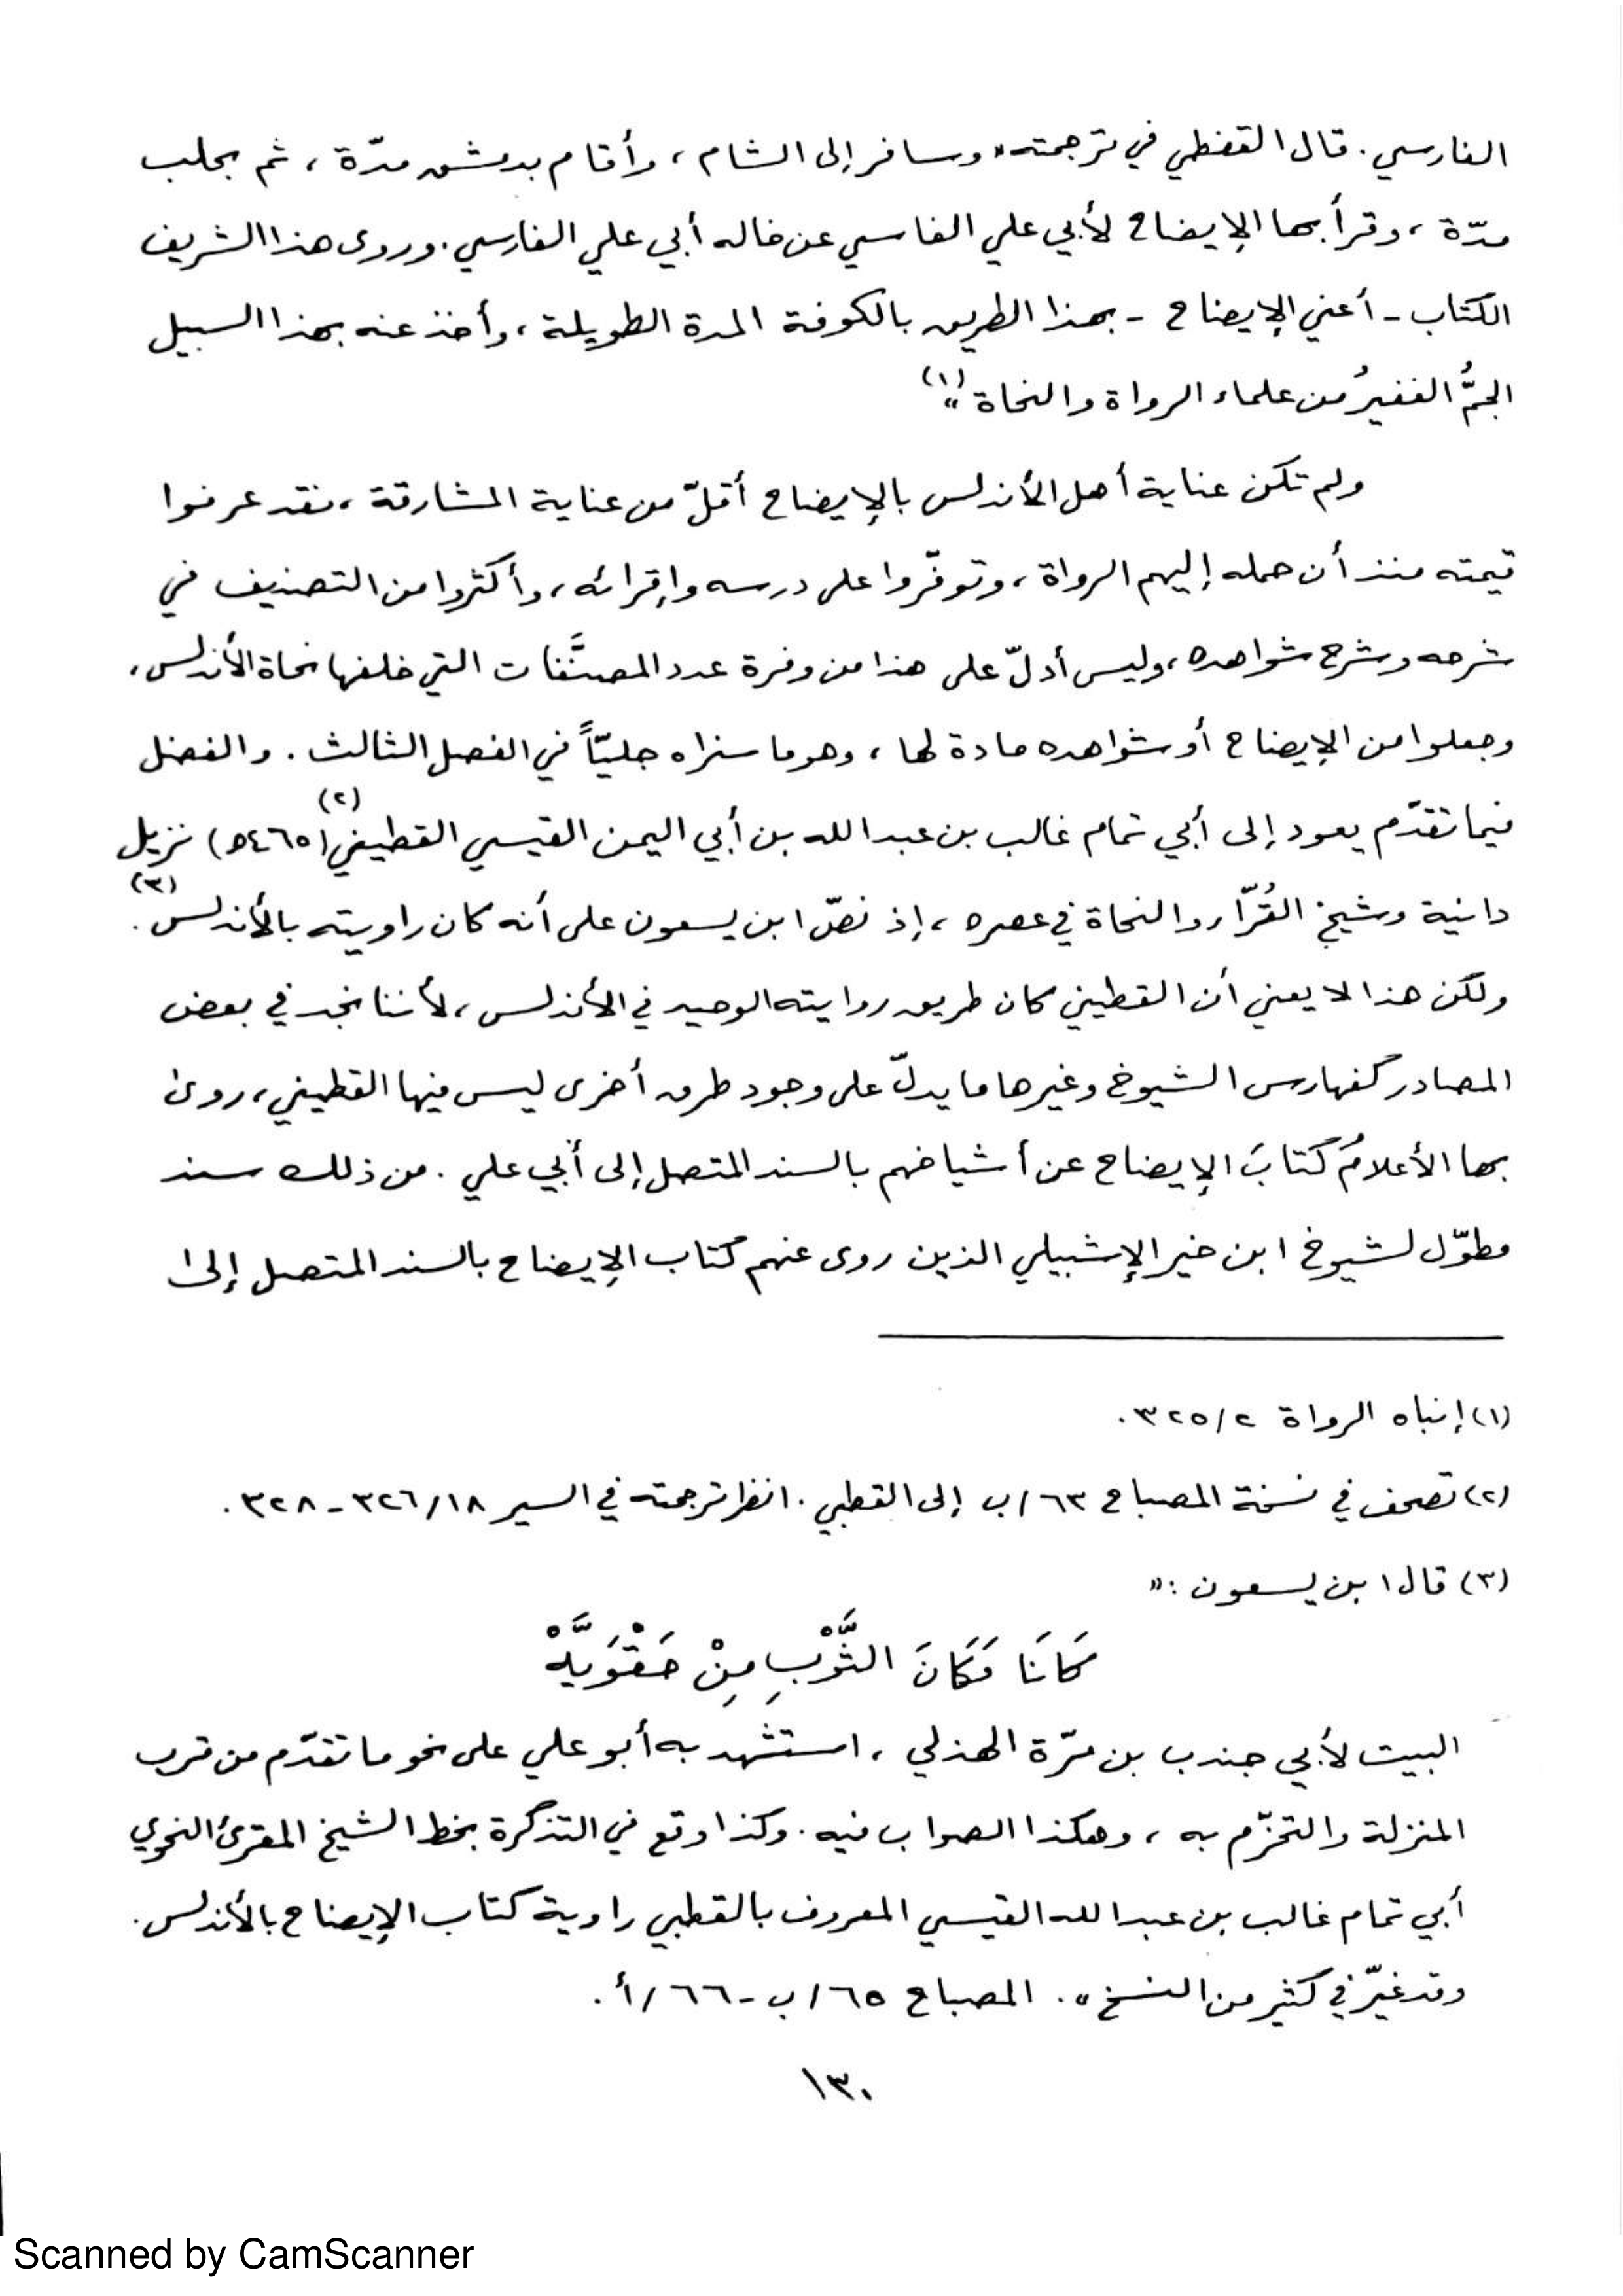 الفارسي. قال القفطي في ترجمته «وسافر إلى الشام، وأقام بدمشق مدّة، ثم بحلب
مدّة، وقرأ بها الإيضاح لأبي علي الفاسي عن خاله أبي علي الفارسي. وروى هذا الشريف
الكتاب - أعني الإيضاح - بهذا الطريق بالكوفة المدة الطويلة، وأخذ عنه بهذا السبيل
الجمُّ الغفيرُ من علماء الرواة والنحاة»(١)
ولم تكن عناية أهل الأندلس بالإيضاح أقلّ من عناية المشارقة، فقد عرفوا
قيمته منذ أن حمله إليهم الرواة، وتوفّروا على درسه وإقرائه، وأكثروا من التصنيف في
شرحه وشرح شواهده، وليس أدلّ على هذا من وفرة عدد المصنَّفات التي خلفها نحاة الأندلس،
وجعلوا من الإيضاح أو شواهده مادة لها، وهو ما سنراه جليّاً في الفصل الثالث. والفضل
فيما تقدّم يعود إلى أبي تمام غالب بن عبدالله بن أبي اليمن القيسي القطيني(٢) (٤٦٥هـ) نزيل
دانية وشيخ القُرّاء والنحاة في عصره، إذ نصّ ابن يسعون على أنه كان راويته بالأندلس(٣).
ولكن هذا لا يعني أن القطيني كان طريق روايته الوحيد في الأندلس، لأننا نجد في بعض
المصادر كفهارس الشيوخ وغيرها ما يدلّ على وجود طرق أخرى ليس فيها القطيني، روى
بها الأعلامُ كتابَ الإيضاح عن أشياخهم بالسند المتصل إلى أبي علي. من ذلك سند
مطوّل لشيوخ ابن خير الإشبيلي الذين روى عنهم كتاب الإيضاح بالسند المتصل إلى
(١) إنباه الرواة ٢/٣٢٥.
(٢) تصحف في نسخة المصباح ٦٣/ب إلى القطبي. انظر ترجمته في السير ١٨/٣٢٦-٣٢٨.
(٣) قال ابن يسعون: «
كَانَا مَكَانَ الثَّوْبِ مِنْ حَقْوَيَّهْ
البيت لأبي جندب بن مرّة الهذلي، استشهد به أبو علي على نحو ما تقدّم من قرب
المنزلة والتحزّم به، وهكذا الصواب فيه. وكذا وقع في التذكرة بخط الشيخ المقرئ النحوي
أبي تمام غالب بن عبدالله القيسي المعروف بالقطبي راوية كتاب الإيضاح بالأندلس.
وقد غيّر في كثير من النسخ». المصباح ٦٥/ب - ٦٦/أ.
١٣٠
Scanned by CamScanner